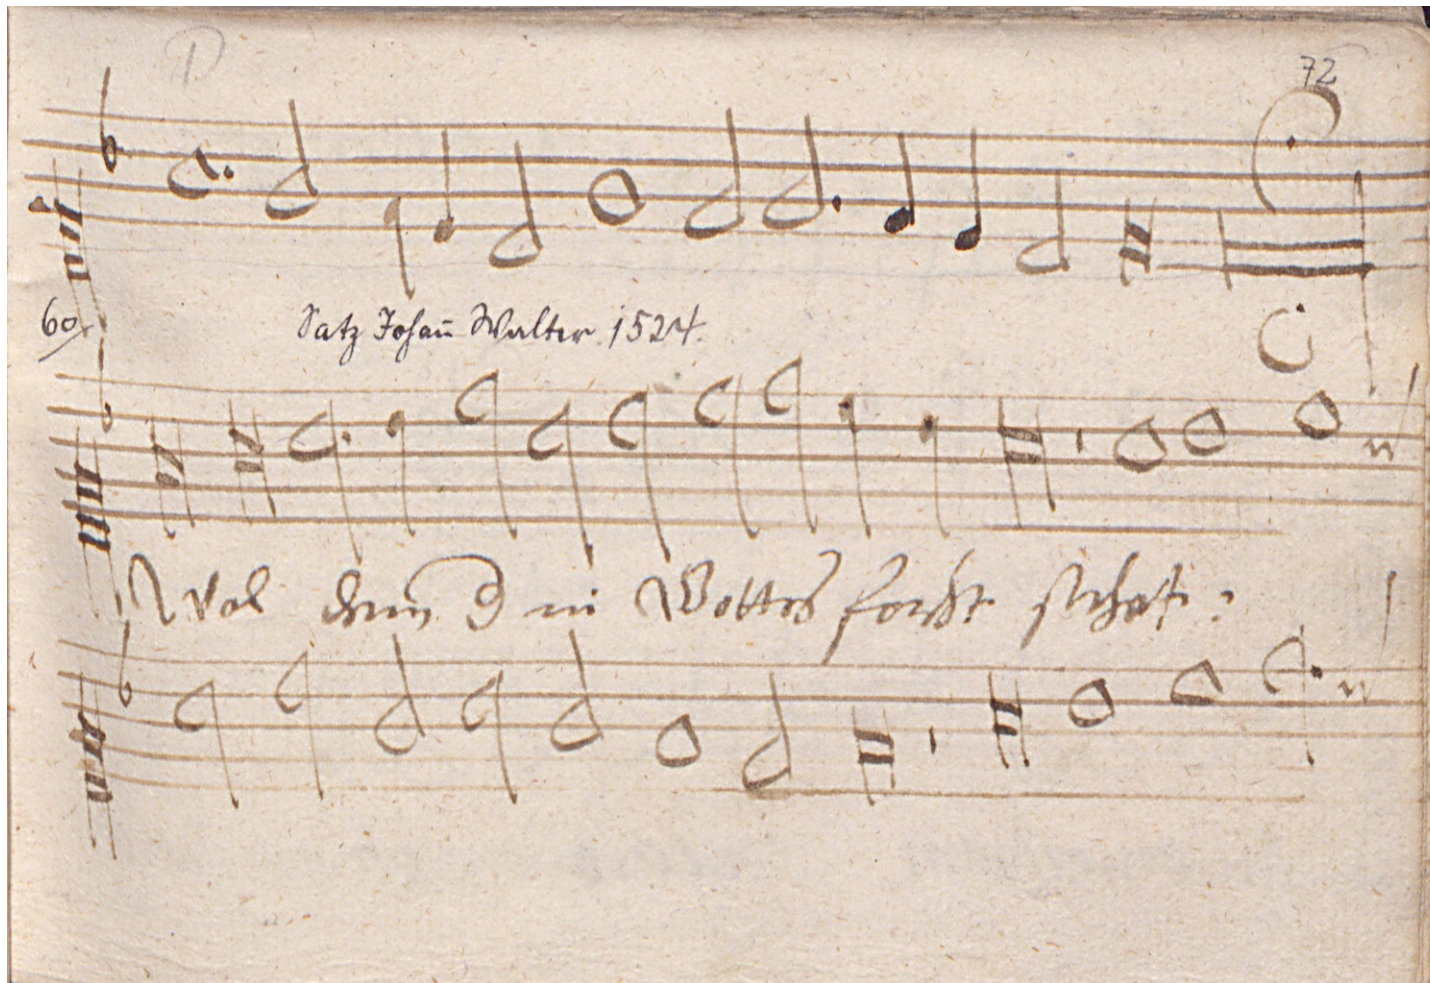 72
60.
Satz Johan̄ Walter. 1524.
Wol dem d in Gottes forcht stehet: